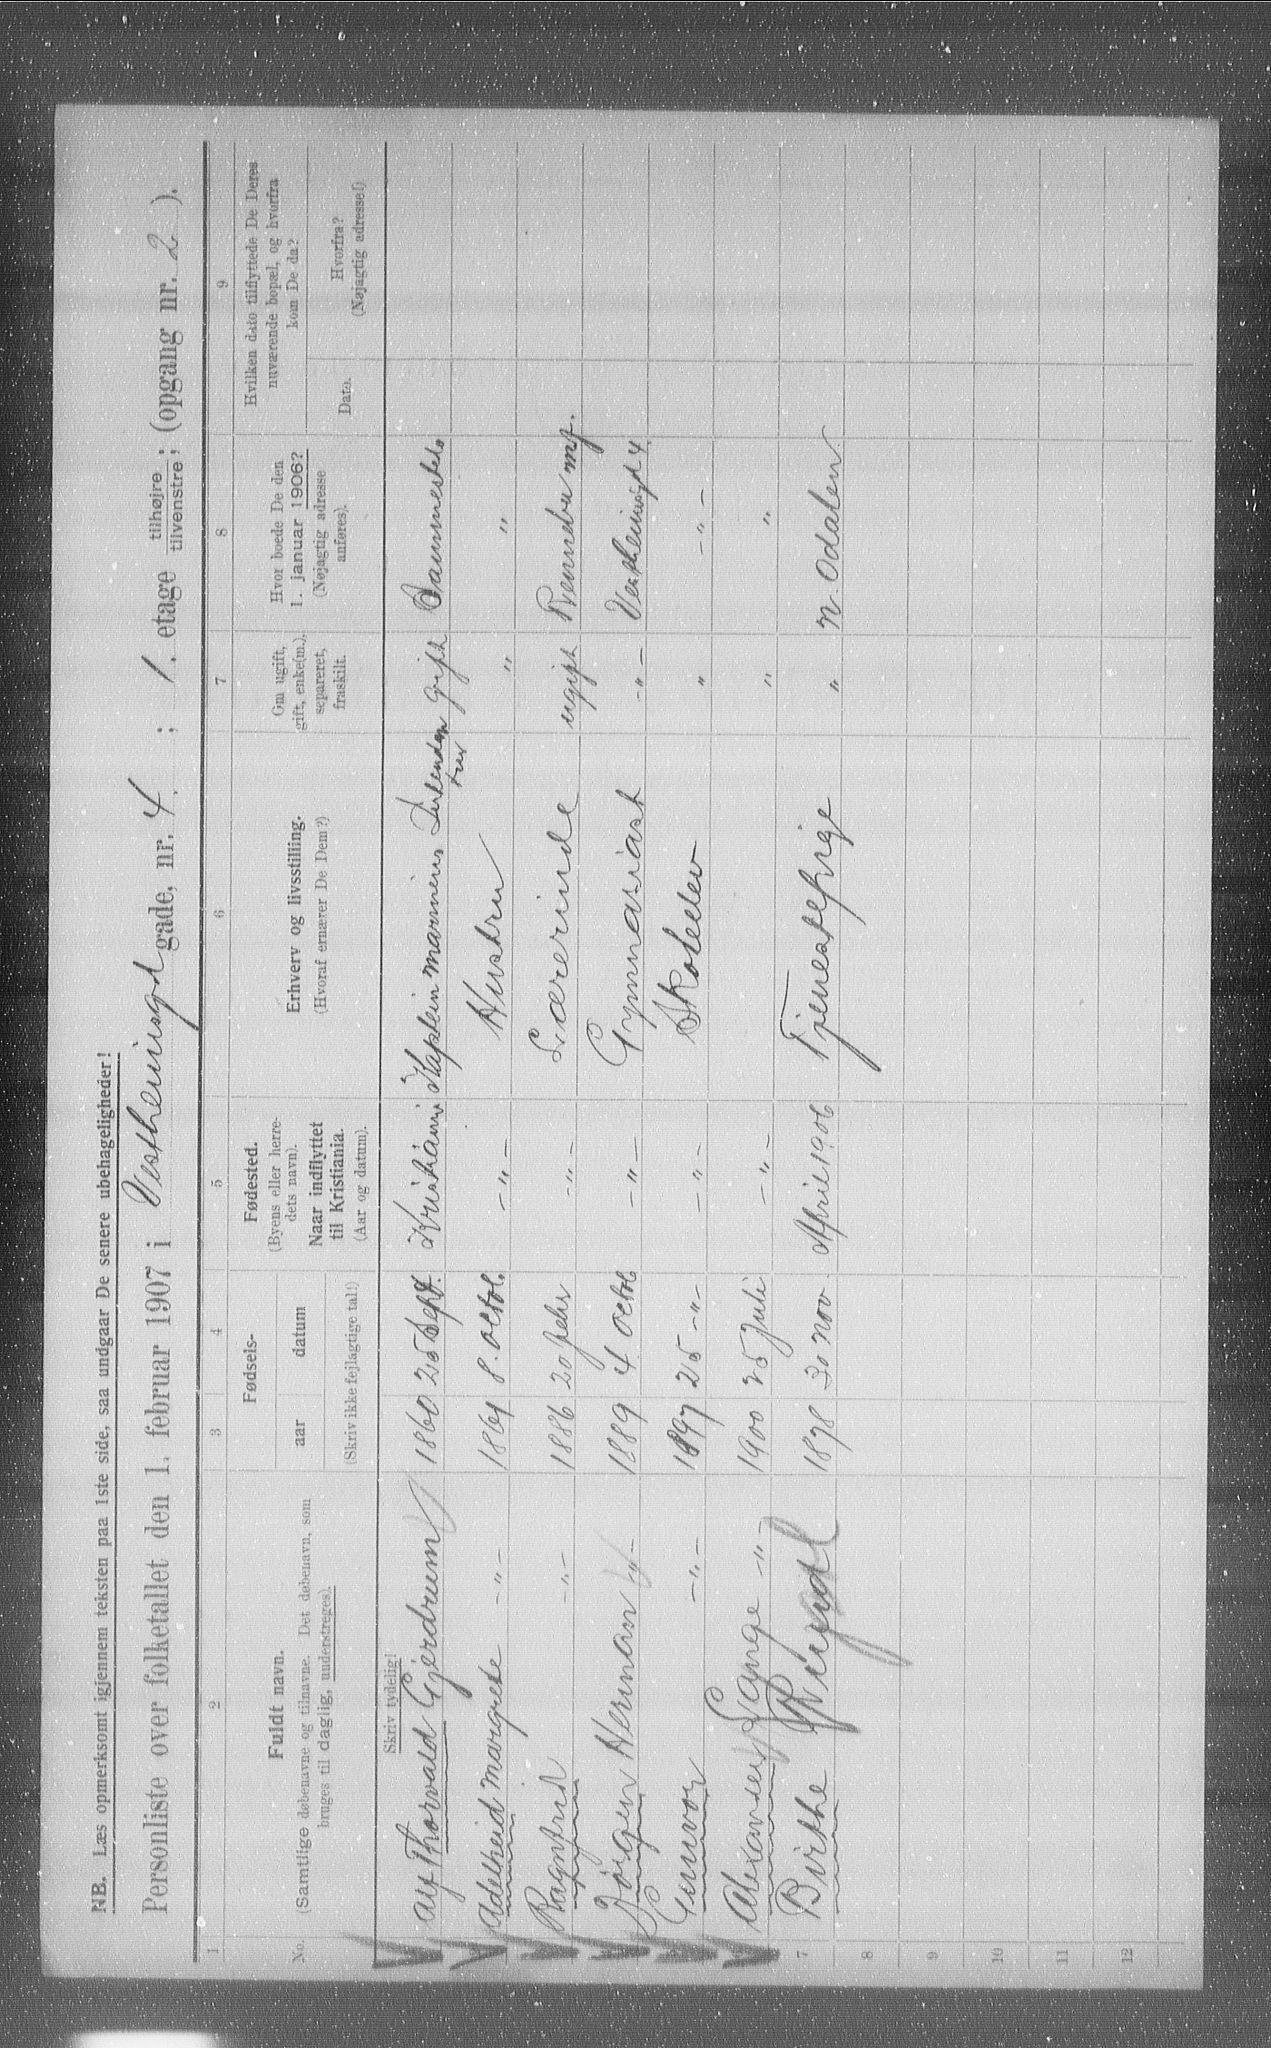 NB. Læs opmerksomt igjennem teksten paa 1ste side, saa undgaar De senere ubehageligheder!
Personliste over folketallet den 1. februar 1907 i Vestheimsgd gade, nr. 4. ; 1. etage tilhøjre tilvenstre; (opgang nr. 2 ).
1 2 3 4 5 6 7 8 9
No.
Fuldt navn.
(Samtlige døbenavne og tilnavne. Det døbenavn, som
bruges til daglig, understreges).
Fødsels-
aar datum
(Skriv ikke fejlagtige tal!)
Fødested.
(Byens eller herre-
dets navn).
Naar indflyttet
til Kristiania.
(Aar og datum).
Erhverv og livsstilling.
(Hvoraf ernærer De Dem?)
Om ugift,
gift, enke(m.),
separeret,
fraskilt.
Hvor boede De den
1. januar 1906?
(Nøjagtig adresse
anføres).
Hvilken dato tilflyttede De Deres
nuværende bopæl, og hvorfra
kom De da?
Dato.
Hvorfra?
(Nøjagtig adresse!)
Skriv tydelig!
Alf Thorvald Gjerdrum 1860 25 Sept. Kristiania Kaptein marinens Intendan tur gift
Adelheid Margrete -"- 1861 8. Octob. -"- Hustru " "
Ragnhild -"- 1886 20 febr -"- Lærerinde ugift Rennebu
Jörgen Herman -"- 1889 4 Octob -"- Gymnasiast -"- Vestheimsgd 4
Gunvor -"- 1897 25 -"- -"- Skoleelev " -"-
Alexander Lange -"- 1900 25 Juli -"- " "
7 Birthe 1878 30 Nov. April 1906 Tjenestepige " N. Odalen
8
9
10
11
12